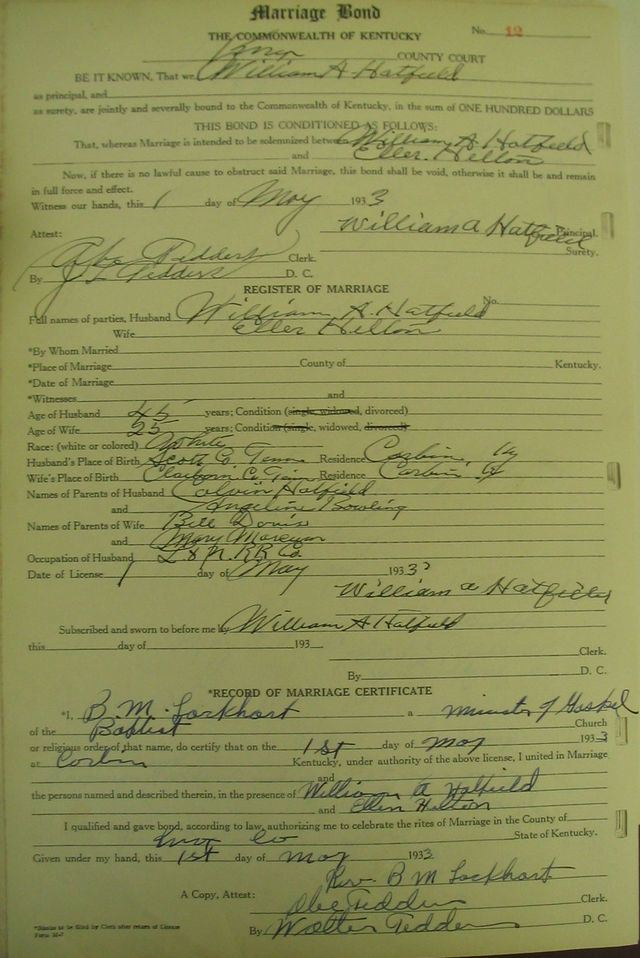 Marriage Bond
No. 12
THE COMMONWEALTH OF KENTUCKY
Knox COUNTY COURT
BE IT KNOWN, That we, William A Hatfield
as principal, and
as surety, are jointly and severally bound to the Commonwealth of Kentucky, in the sum of ONE HUNDRED DOLLARS
THIS BOND IS CONDITIONED AS FOLLOWS:
That, whereas Marriage is intended to be solemnized between William A. Hatfield
and Eller. Helton
Now, if there is no lawful cause to obstruct said Marriage, this bond shall be void, otherwise it shall be and remain
in full force and effect.
Witness our hands, this 1 day of May 1933
William A Hatfield Principal.
Attest: Surety.
Abe Tedders Clerk.
By J L Tedders D. C.
REGISTER OF MARRIAGE
No.
Full names of parties, Husband William A. Hatfield
Wife Eller Helton
*By Whom Married
*Place of Marriage County of Kentucky.
*Date of Marriage
*Witnesses and
Age of Husband 45 years; Condition (single, widowed, divorced)
Age of Wife 55 years; Condition (single, widowed, divorced)
Race: (white or colored) White
Husband's Place of Birth Scott Co. Tenn Residence Corbin, Ky
Wife's Place of Birth Claiborn Co Tenn Residence Corbin Ky
Names of Parents of Husband Calvin Hatfield
and Angeline Bowling
Names of Parents of Wife Bill Davis
and Mary
Occupation of Husband L & N. RR Co.
Date of License 1 day of May 1933
William A Hatfield
Subscribed and sworn to before me by William A Hatfield
this day of 193
Clerk.
By D. C.
*RECORD OF MARRIAGE CERTIFICATE
*I, B. M. Lockhart a Minister of Gospel
of the Baptist Church
or religious order of that name, do certify that on the 1st day of May 1933
at Corbin Kentucky, under authority of the above license, I united in Marriage
and
the persons named and described therein, in the presence of William A Hatfield
and Ellen Helton
I qualified and gave bond, according to law, authorizing me to celebrate the rites of Marriage in the County of
Knox Co State of Kentucky.
Given under my hand, this 1st day of May 1933
Rev. B M Lockhart
A Copy, Attest: Abe Tedders Clerk.
By Walter Tedders D. C.
*Blanks to be filled by Clerk after return of License